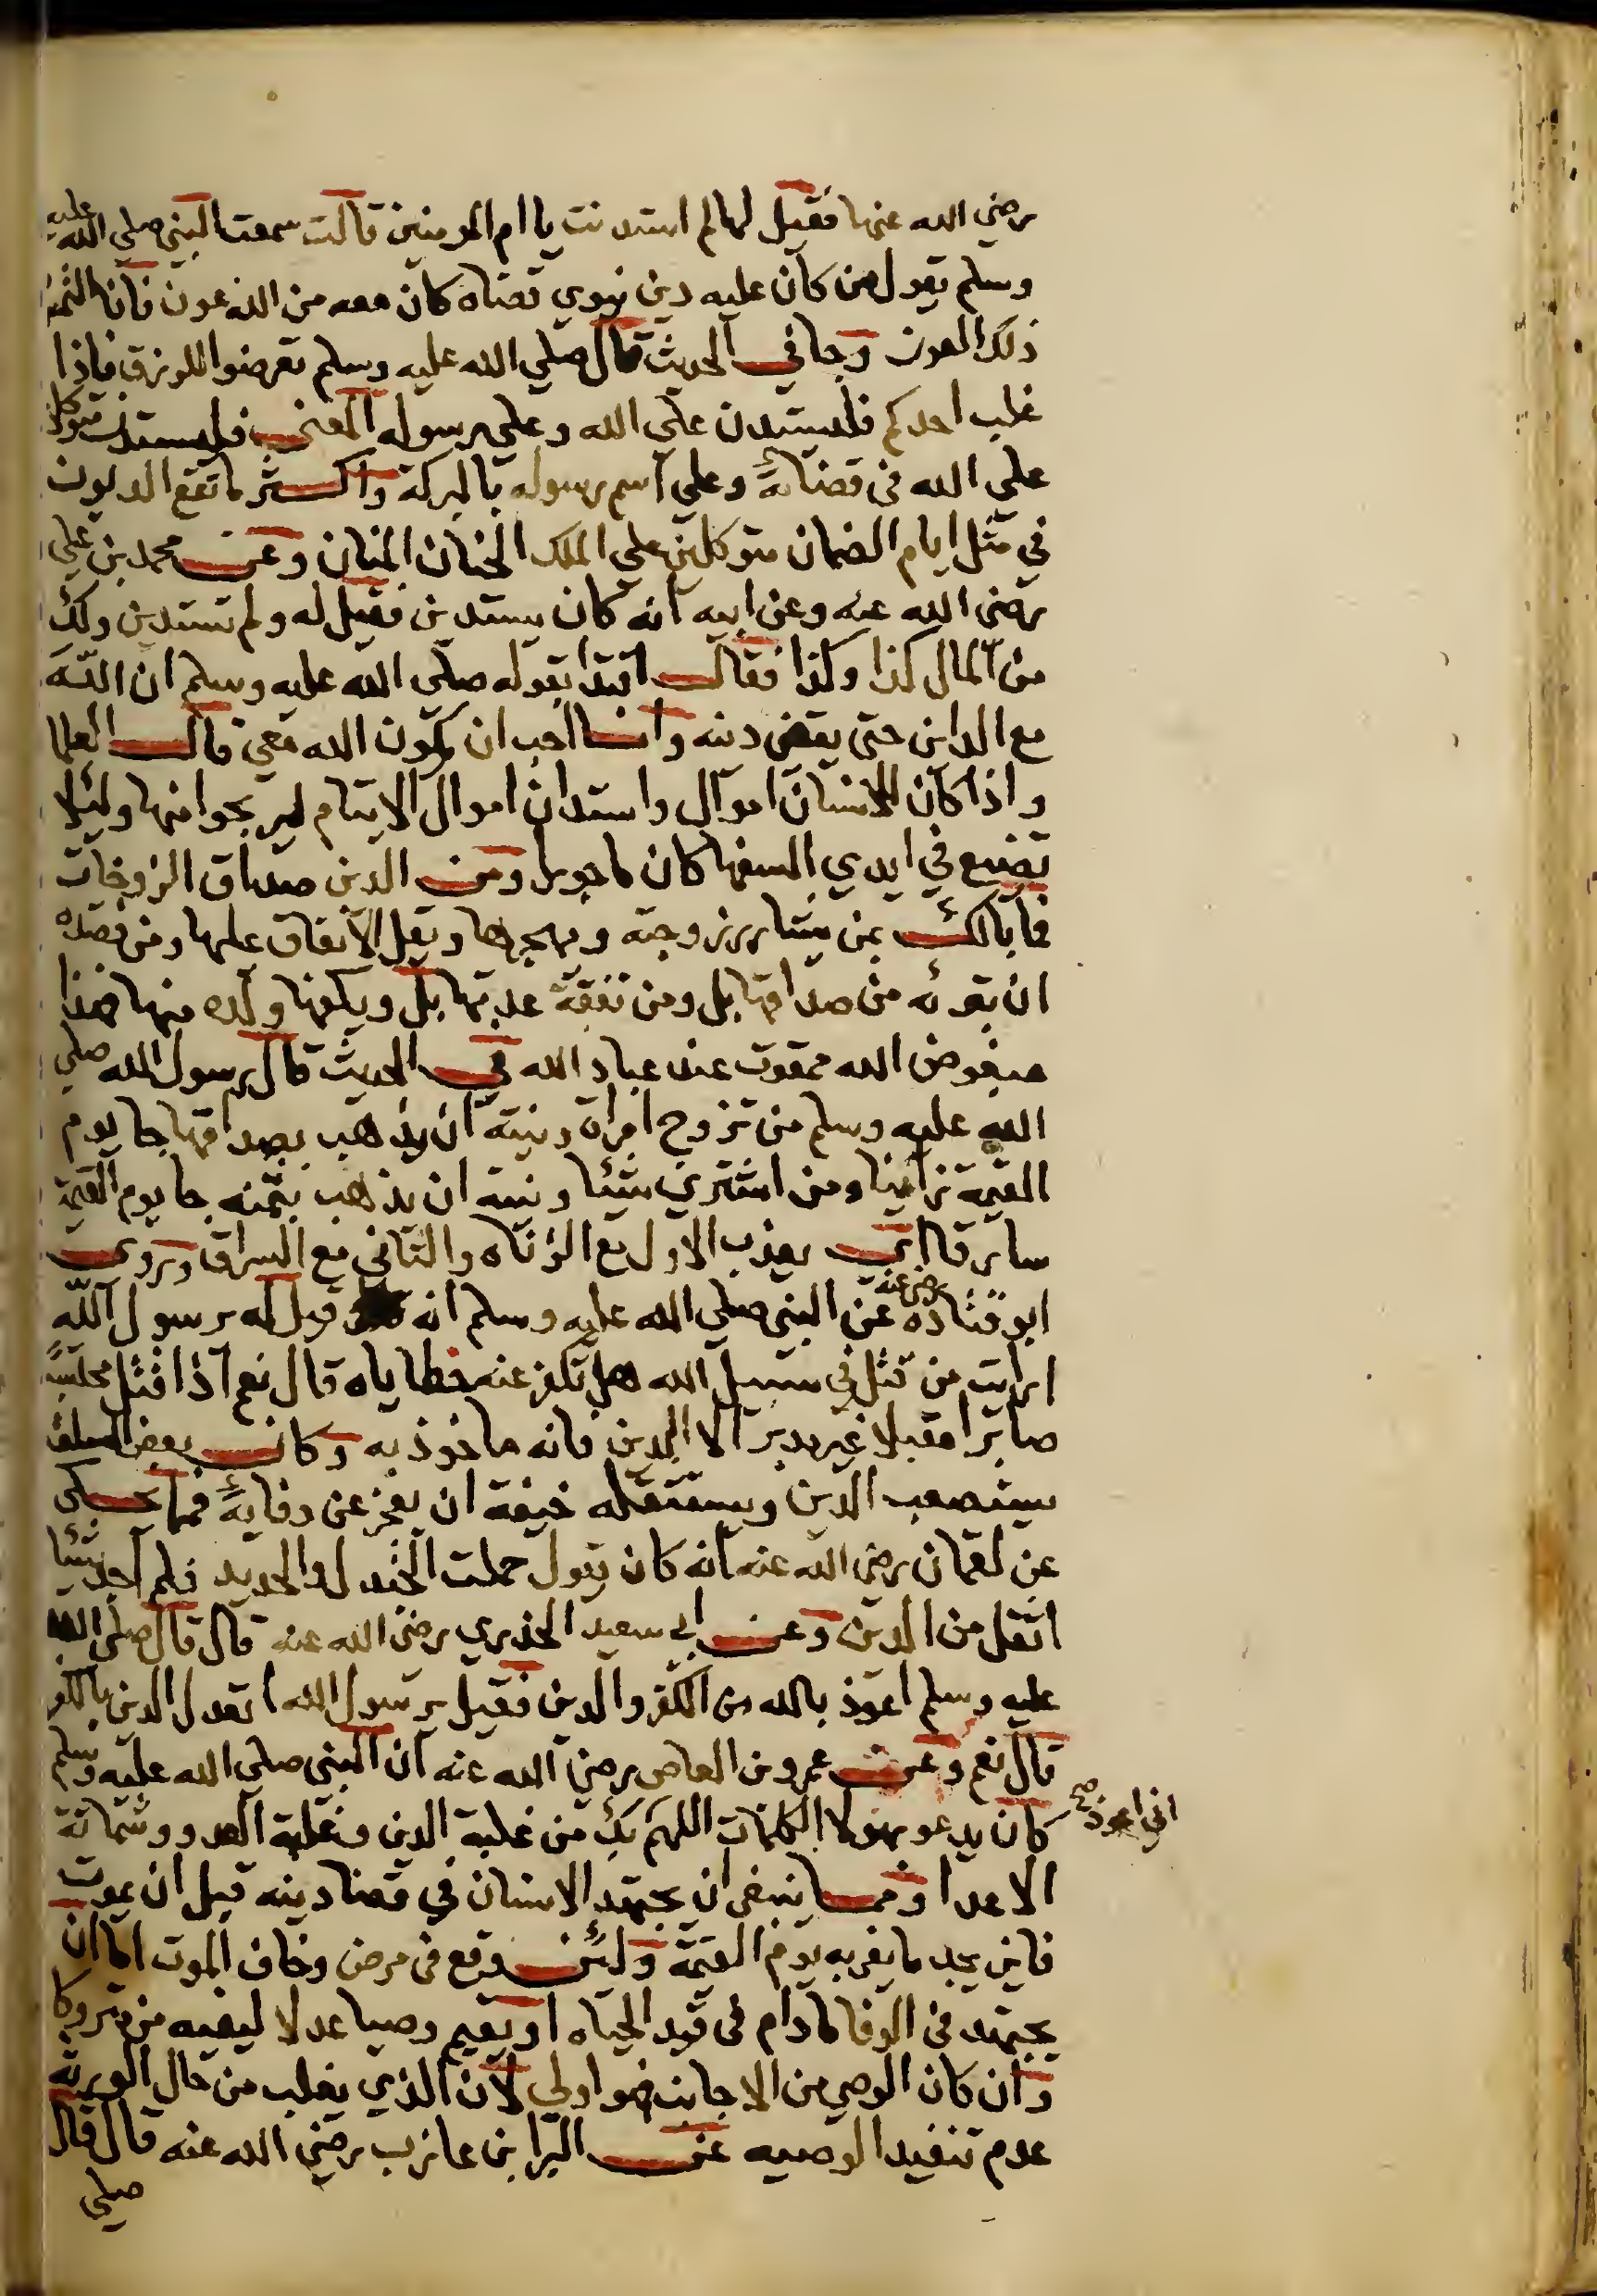 رضي الله عنها فقيل لها لم استدنت يا ام المومنين قالت سمعت النبي صلى الله عليه
وسلم يقول من كان عليه دين ينوي قضاه كان معه من الله عون فانا التمس
ذلك العون وجا في الحديث قال صلي الله عليه وسلم تعرضوا للرزق فاذا
غلب احدكم فليستدن علي الله وعلي رسوله المعني فليستدن متوكلا
علي الله في قضائه وعلي اسم رسوله بالبركة واكثر ما تقع الديون
في مثل ايام الضمان متوكلين علي الملك الحنان المنان وعن محمد بن علي
رضي الله عنه وعن ابيه انه كان يستدين فقيل له ولم تستدين ولك
من المال كذا وكذا فقال اقتدا بقوله صلي الله عليه وسلم ان الله
مع الداين حتى يقضي دينه وانا احب ان يكون الله معي قال العلما
واذا كان للانسان اموال واستدان اموال الايتام ليربحوا منها ولئلا
تضيع في ايدي السفها كان ماجورا ومن الدين صداق الزوجات
فما بالك بمن يشارر زوجته ويهجرها ويقل الانفاق عليها ومن قصده
ان يقوته من صداقها بل ومن نفقة عدتها بل ويكفها ولده منها فهذا
مبغوض الله ممقوت عند عباد الله في الحديث قال رسول الله صلي
الله عليه وسلم من تزوج امراة ونيته ان يذهب بصداقها جا يوم
القيمة زانيا ومن اشتري شئيا ونيته ان يذهب بثمنه جا يوم القيمة
سارقا اي يعذب الاول مع الزناه والثاني مع السراق وروى
ابو قتادة رضي عنه عن النبي صلي الله عليه وسلم انه قيل له يرسول الله
ارايت من قتل في سبيل الله هل تكفر عنه خطاياه قال نعم اذا قتل محتسبا
صابرا مقبلا غير مدبر الا الدين فانه ماخوذ به وكان بعض السلف
يستصعب الدين ويستثقله خيفة ان يعجز عن وفايه فمما يحكى
عن لقمان رضي الله عنه انه كان يقول حملت الجندل والحديد فلم اجد شئيا
اثقل من الدين وعن ابي سعيد الخذري رضي الله عنه قال قال صلي الله
عليه وسلم اعوذ بالله من الكفر والدين فقيل يرسول الله اتعدل الدين بالكفر
قال نعم وعن عمرو بن العاص رضي الله عنه ان النبي صلي الله عليه وسلم
كان يدعو بهولا الكلمات اللهم اني اعوذ صح بك من غلبة الدين وغلبة العدو وشماتة
الاعدا ومما ينبغي ان يجتهد الانسان في قضا دينه قبل ان يموت
فاين يجد ما يفي به يوم القيمة ولئن وقع في مرض وخاف الموت اما ان
يجتهد في الوفا مادام في قيد الحياه او يقيم وصيا عدلا ليفيه من متروكا
وان كان الوصي من الاجانب فهو اولي لان الذي يغلب من حال الورثة
عدم تنفيد الوصيه عن البرا بن عازب رضي الله عنه قال قال
صلي